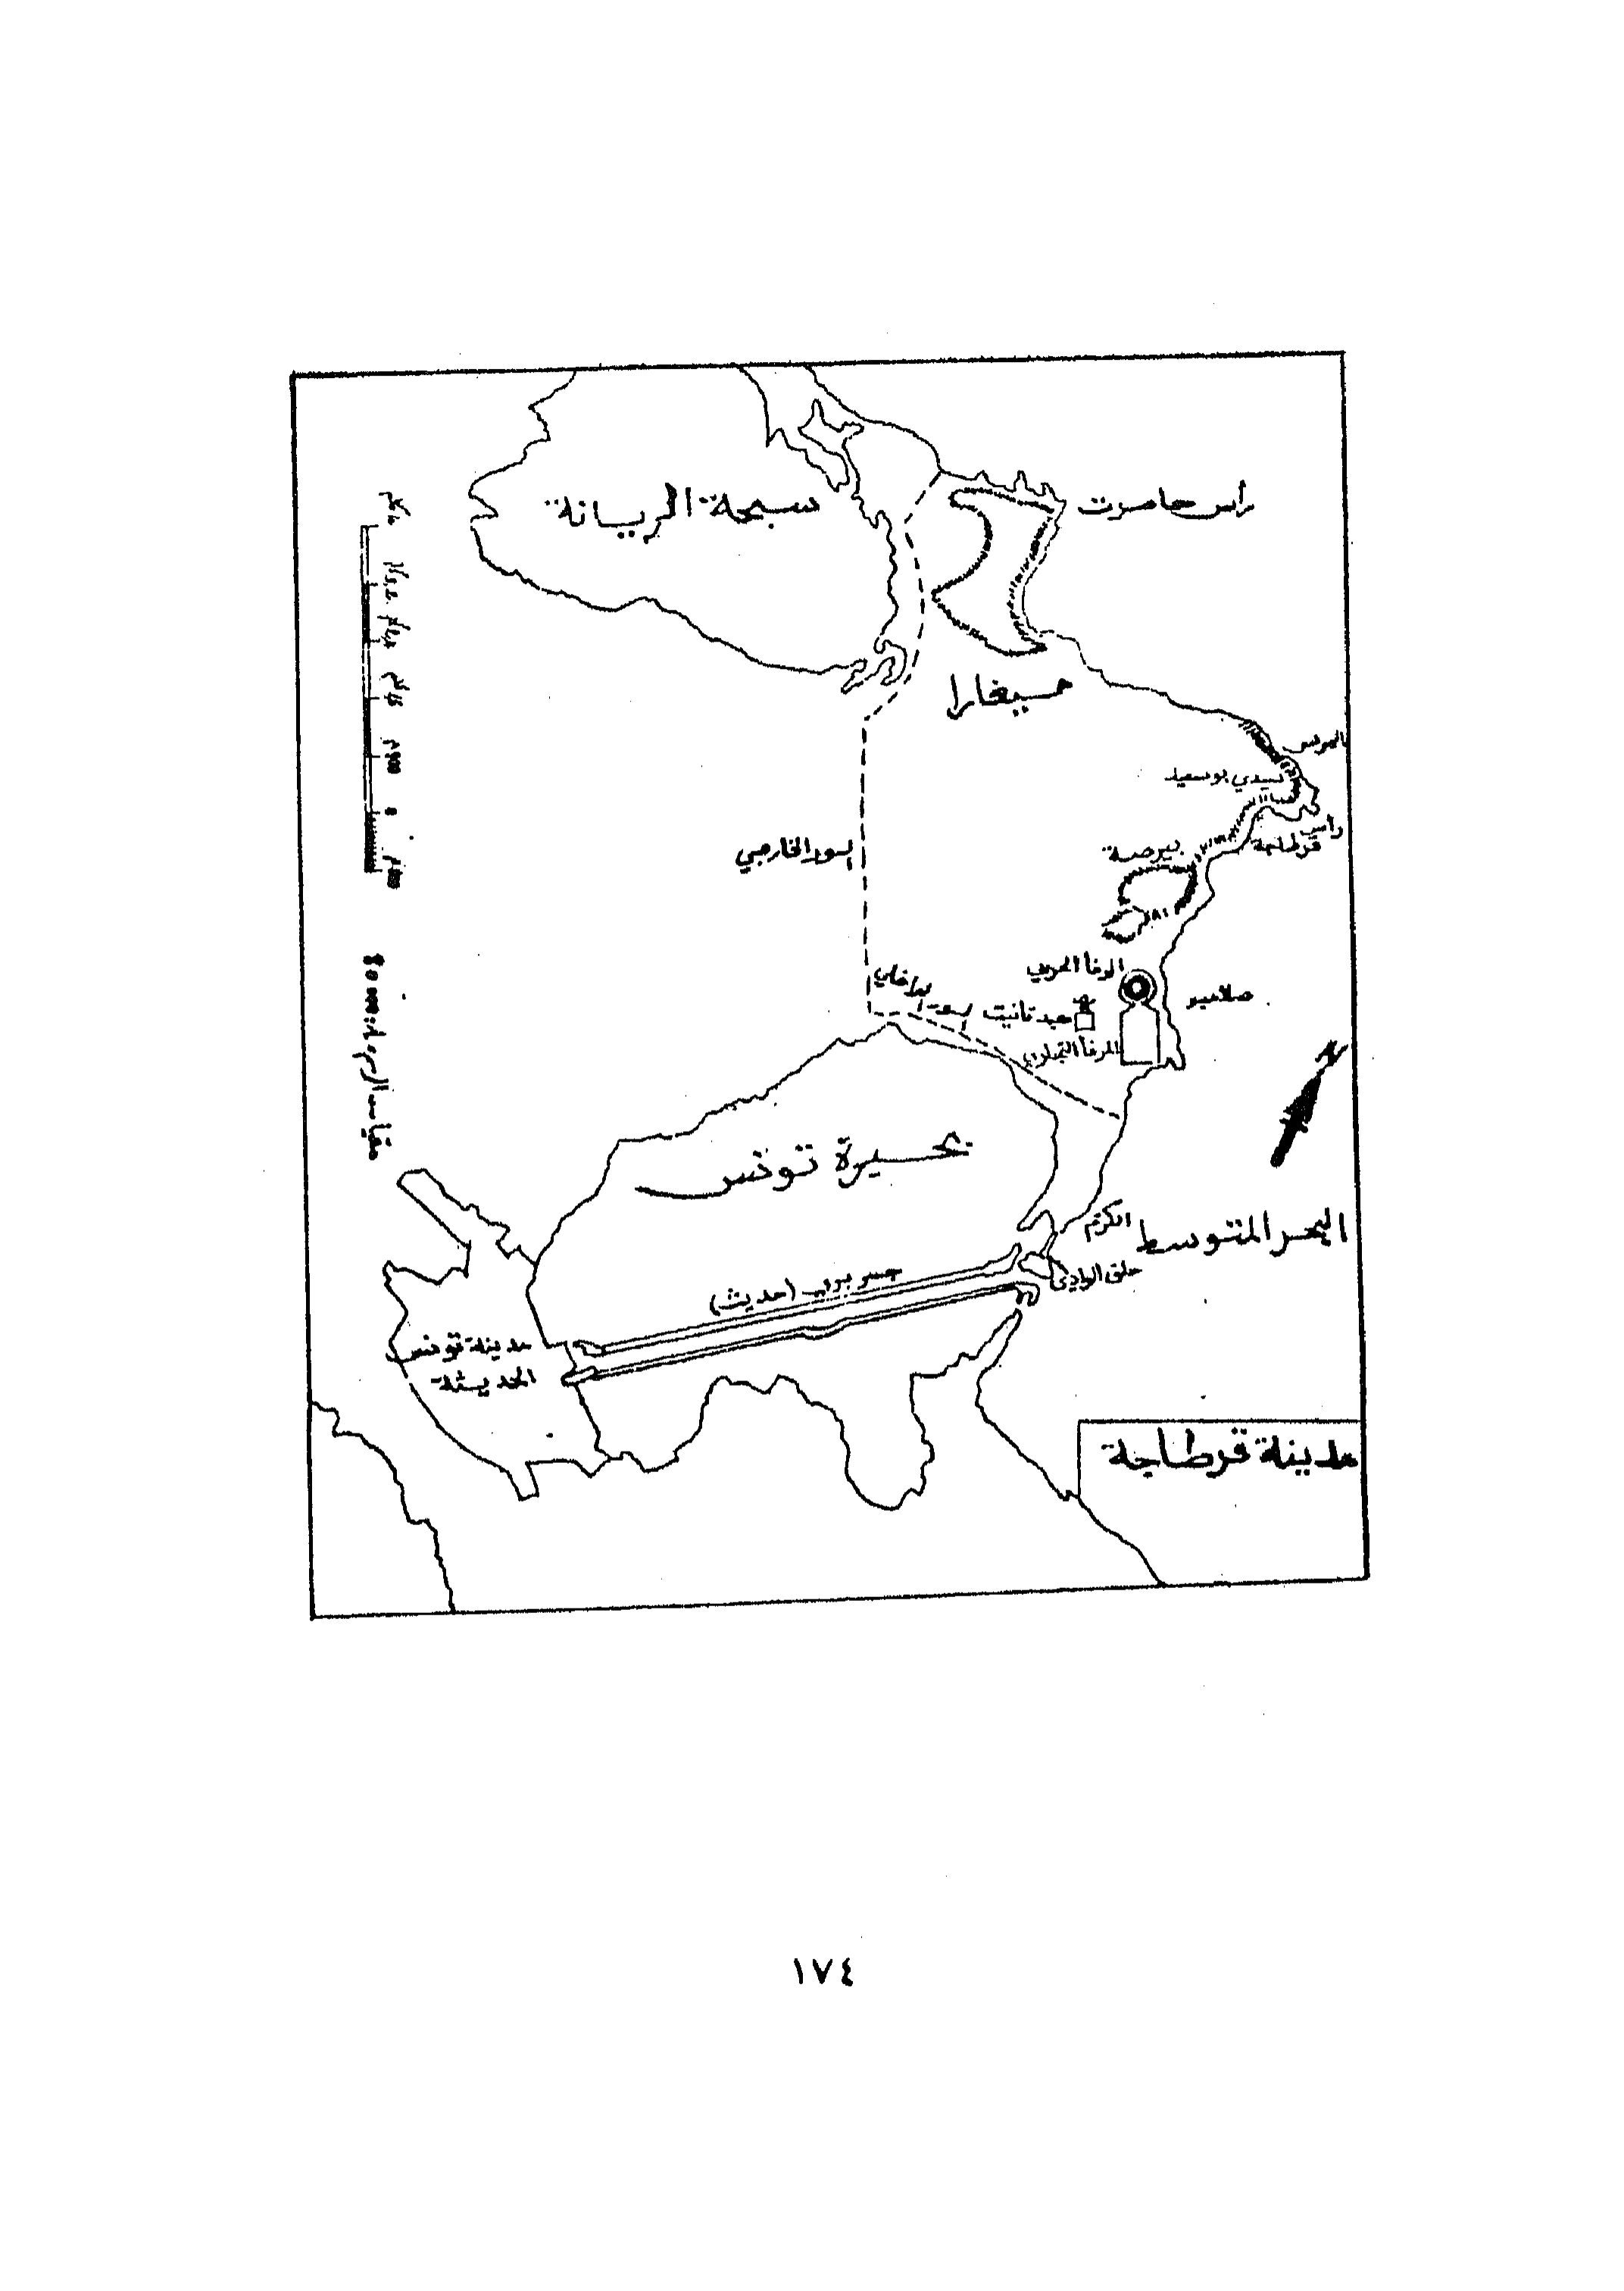 رأس حامرت
سبخة الريانة
ميغارا
المرس
سيدي بو سعيد
رأس
قرطاجة
بيرصة
السور الخارجي
المرفأ الحربي
صلامبو
معبد تانيت
السور الداخلي
المرفأ التجاري
بحيرة تونس
الكرم
البحر المتوسط
حلق الوادي
جسر بري (حديث)
مدينة تونس
الحديثة
مدينة قرطاجة
N
١٧٤